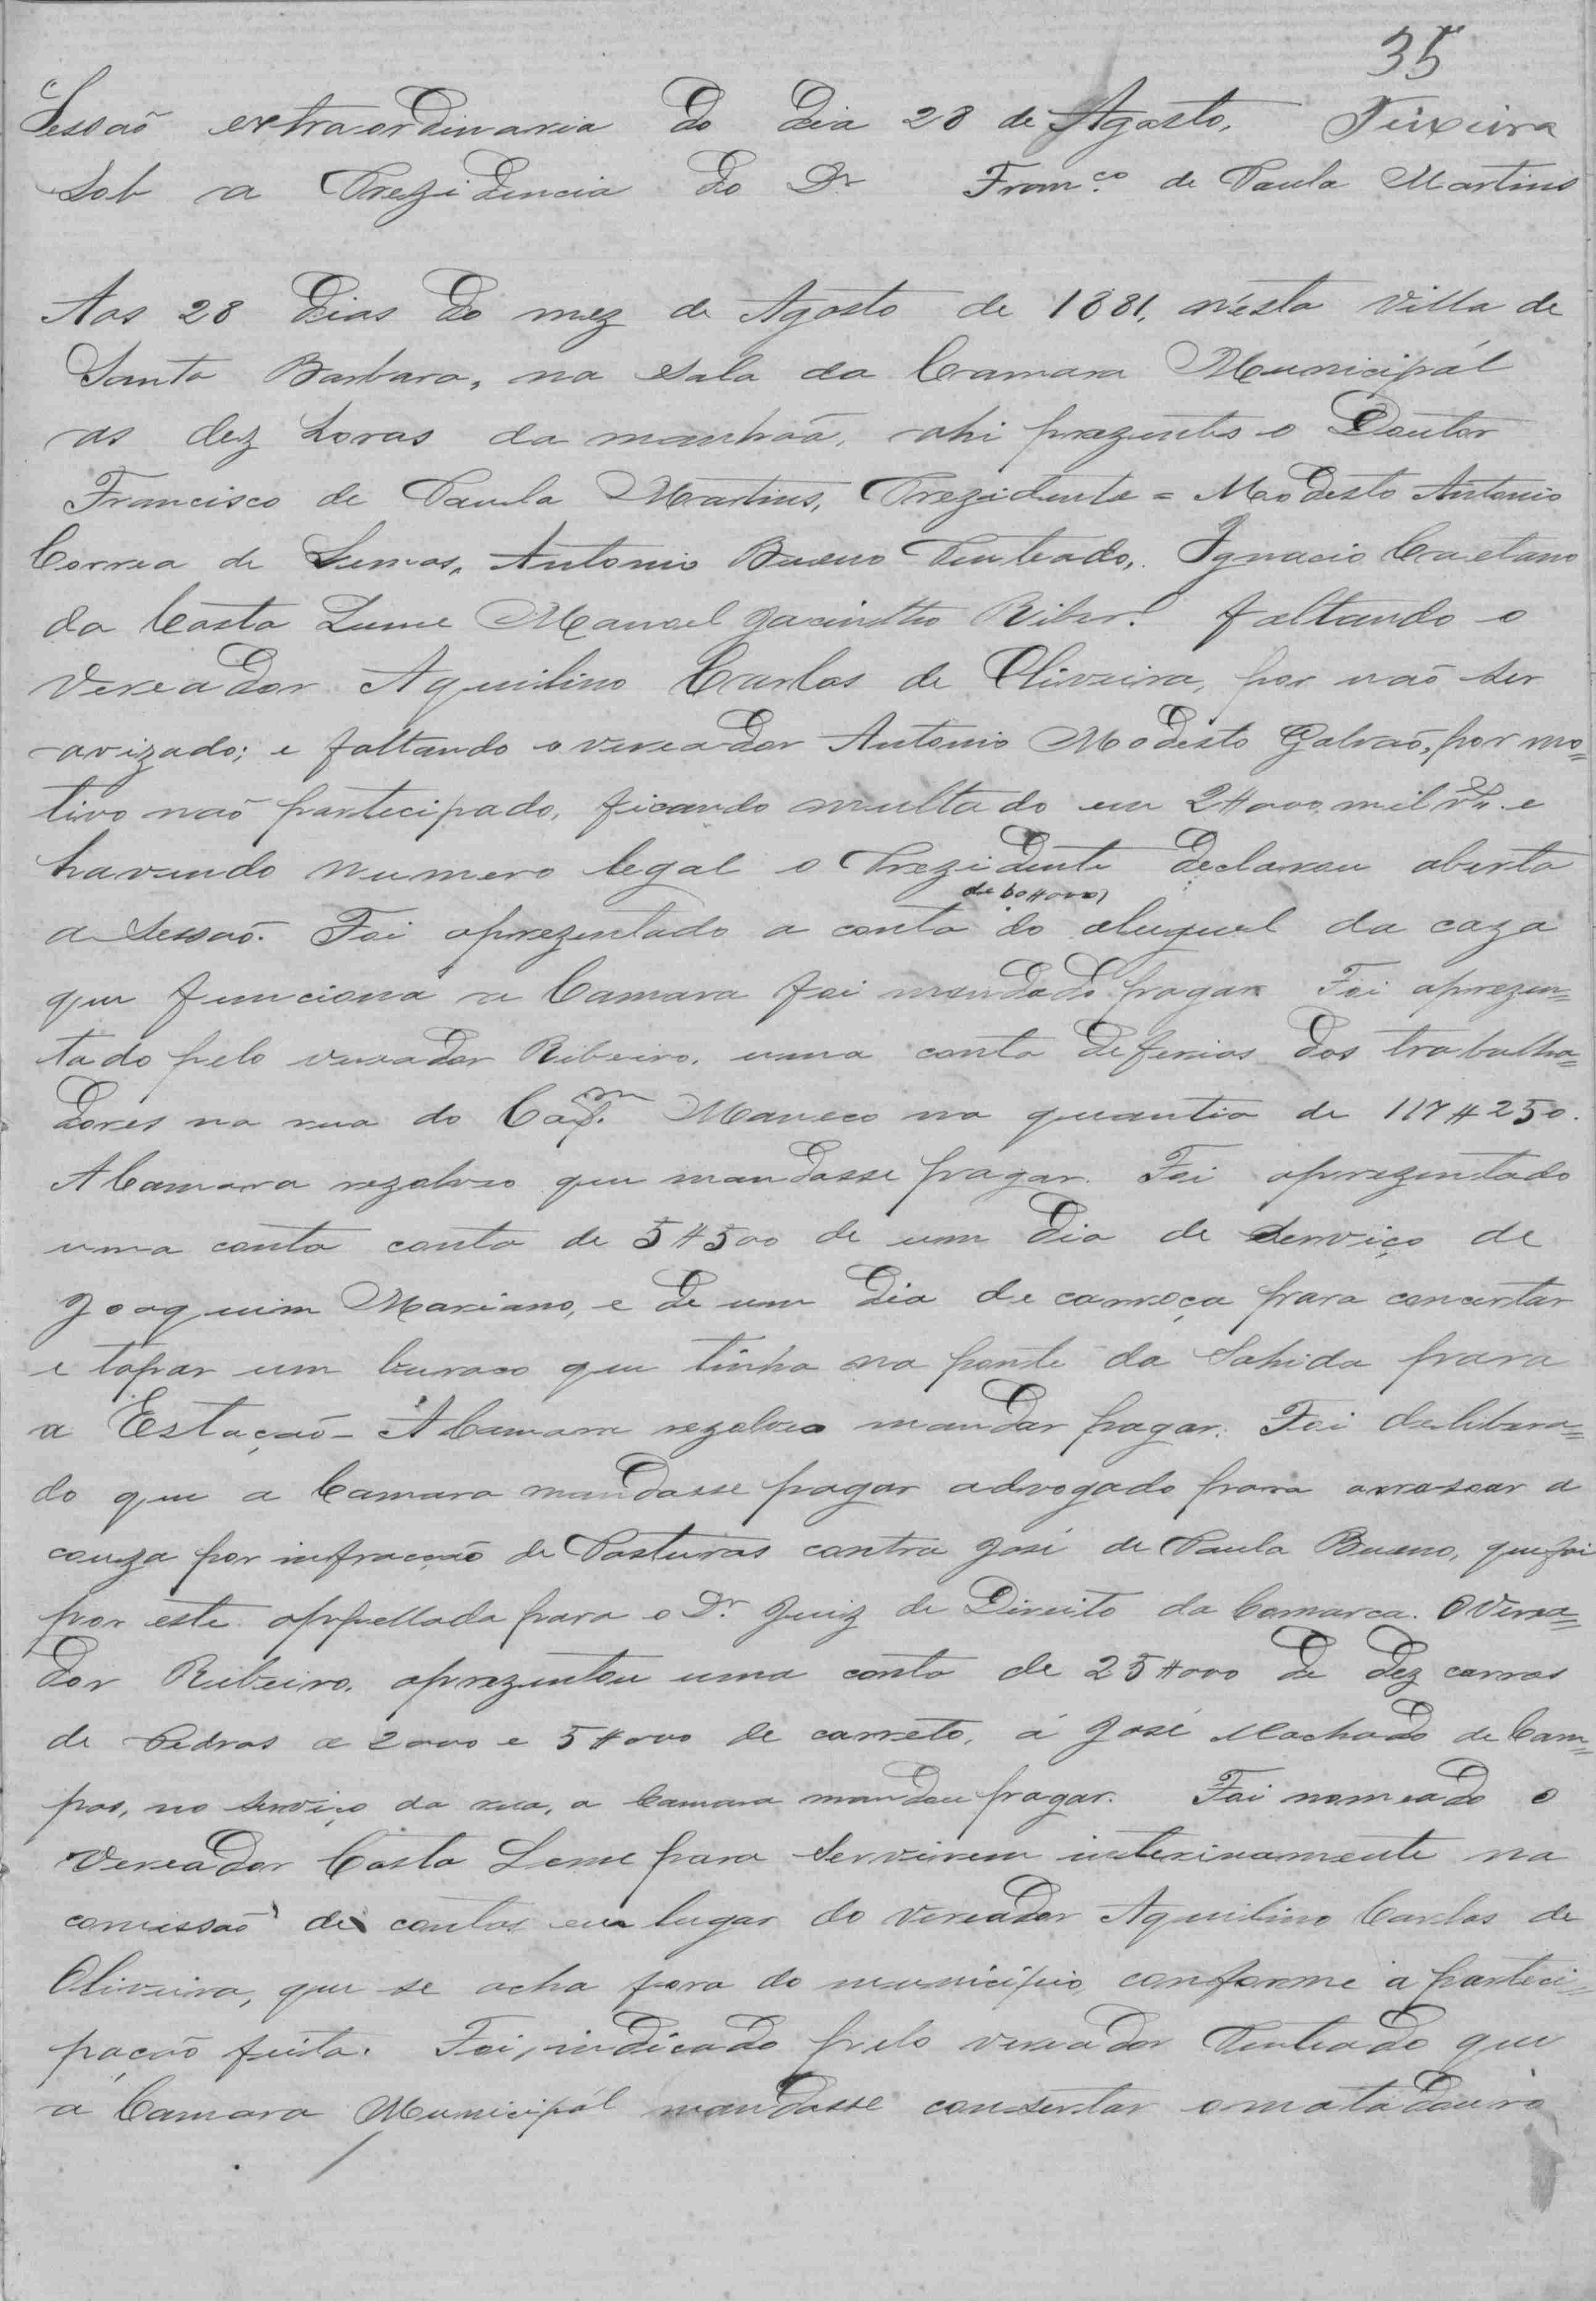 35
Sessaõ extraordinaria do dia 28 de Agosto. Teixeira
Sob a Prezidencia do Dr Franco. de Paula Martins
Aos 28 dias do mez de Agosto de 1881, n'esta Villa de
Santa Barbara, na sala da Camara Municipál
as dez horas da manhaã, ahi prezentes o Doutor
Francisco de Paula Martins, Prezidente = Modesto Antonio
Correa de Lemos, Antonio Bueno Penteado, Ignacio Caetano
da Costa Leme Manoel Jacintho Riber.o faltando o
Vereador Aquilino Carlos de Oliveira, por naõ ser
avizado; e faltando o vereador Antonio Modesto Galvaõ, por mo=
tivo naõ partecipado, ficando multado em 2#000, mil rs. e
havendo numero legal o Prezidente declarou aberta
a Sessaõ. Foi aprezentado a conta do aluguel da caza
de 60#000)
que funciona a Camara foi mandado pagar Foi aprezen=
tado pelo vereador Ribeiro, uma conta de ferias dos trabalha=
dores na rua do Capm. Maneco na quantia de 117#250.
A Camara rezolveo que mandasse pagar. Foi aprezentado
uma conta conta de 5#500 de um dia de serviço de
Joaquim Mariano, e de um dia de carroça para concertar
e tapar um buraco que tinha na ponte da Sahida para
a Estaçaõ - A Camara rezolveo mandar pagar. Foi delibera=
do que a Camara mandasse pagar advogado para arrasoar a
couza por infracçaõ de Posturas contra José de Paula Bueno, que foi
por este appellada para o Dr. Juiz de Direito da Comarca. O Verea=
dor Ribeiro, aprezentou uma conta de 25#000 de dez carros
de Pedras a 2000 e 5#000 de carreto, á José Machado de Cam=
pos, no serviço da rua, a Camara mandou pagar. Foi nomeado o
Vereador Costa Leme para servirem interinamente na
comissaõ de contas em lugar do vereador Aquilino Carlos de
Oliveira, que se acha fora do municipio, conforme a parteci=
paçaõ feita. Foi indicado pelo vereador Penteado que
a Camara Municipál mandasse consertar o matadouro